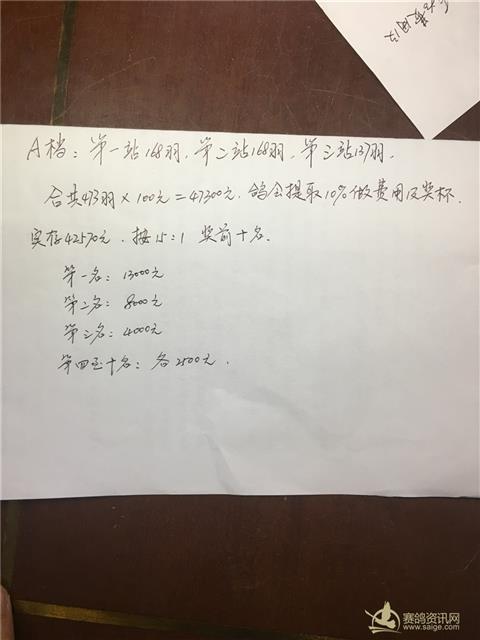 A档：第一站168羽，第二站168羽，第三站137羽，
合共473羽×100元=47300元，鸽会提取10%做费用及奖杯．
实存42570元．按15:1 奖前十名．
第一名：13000元
第二名：8000元
第三名：4000元
第四至十名：各2500元．
赛鸽资讯网
www.saige.com